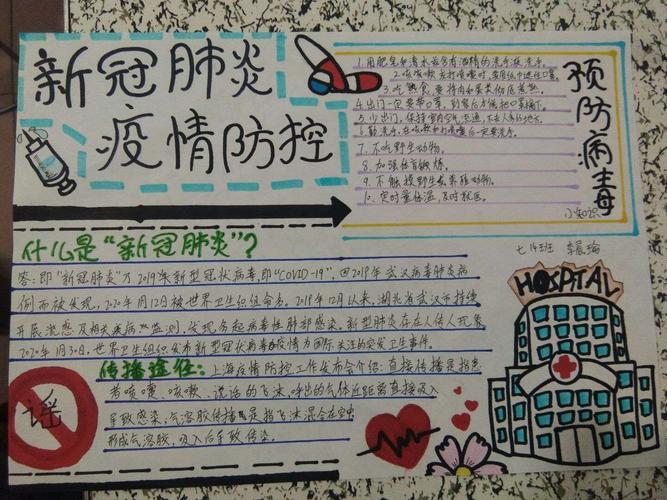 新冠肺炎
疫情防控
1.用肥皂和清水或含有酒精的洗手液洗手。
2.咳嗽或打喷嚏时,要用纸巾遮住口鼻。
3.吃熟食,要将肉和蛋类彻底煮熟。
4.出门一定要带口罩,到家后才能把口罩摘下。
5.少出门,保持室内空气流通,不去人多的地方。
6.勤洗手,在咳嗽和打喷嚏后一定要洗手。
7.不吃野生动物。
8.加强体育锻炼。
9.不触摸野生或养殖动物。
10.定时量体温,及时就医。
预防病毒
小知识
什么是“新冠肺炎”?
七.14班 李晨瑜
答:即“新冠肺炎”为2019年新型冠状病毒,即“COVID-19”,因2019年武汉病毒肺炎病
例而被发现,2020年1月12日被世界卫生组织命名。2019年12月以来,湖北省武汉市持续
开展流感及相关疾病监测,发现多起病毒性肺部感染,新型肺炎存在人传人现象
2020年1月30日,世界卫生组织发布新型冠状病毒疫情为国际关注的突发卫生事件。
传播途径:上海疫情防控工作发布会介绍:直接传播是指患
者喷嚏、咳嗽、说话的飞沫,呼出的气体近距离直接吸入
导致感染;气溶胶传播是指飞沫混合在空中
形成气溶胶,吸入后导致传染。
谣
HOSPITAL